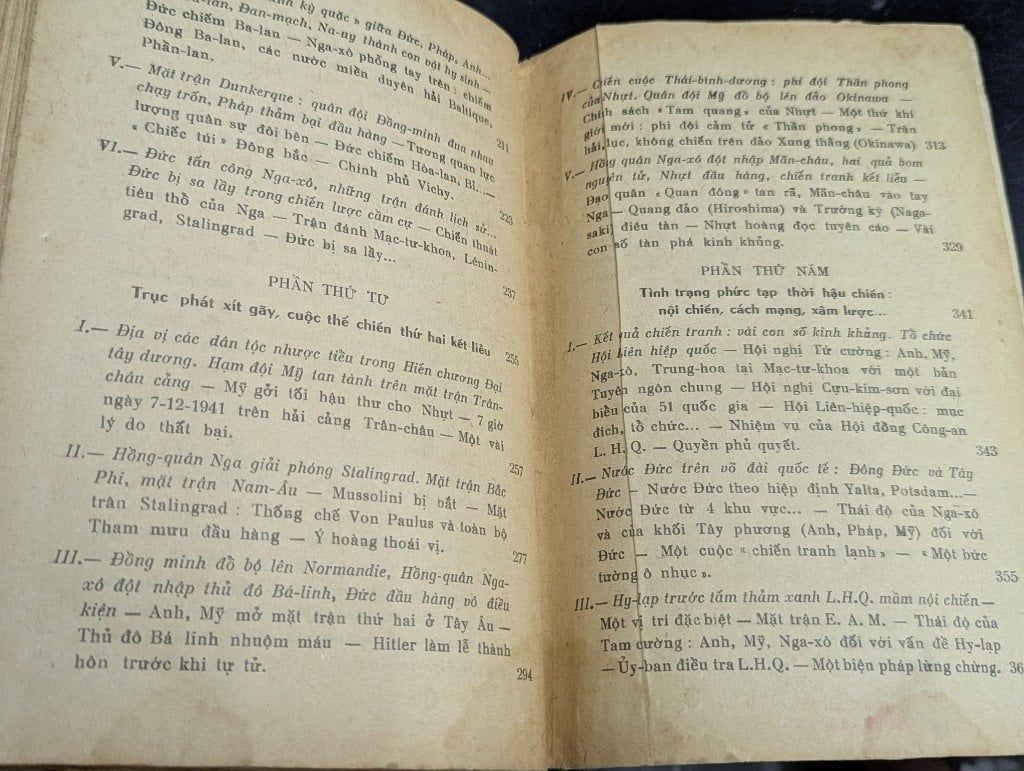 kỳ quặc » giữa Đức, Pháp, Anh...
Đan-mạch, Na-uy thành con vật hy sinh —
Đức chiếm Ba-lan — Nga-xô phỗng tay trên : chiếm
Đông Ba-lan, các nước miền duyên hải Baltique,
Phần-lan. 211
V.— Mặt trận Dunkerque : quân đội Đồng-minh đua nhau
chạy trốn, Pháp thảm bại đầu hàng — Tương quan lực
lượng quân sự đôi bên — Đức chiếm Hòa-lan, Bỉ...—
« Chiếc túi » Đông bắc — Chính phủ Vichy. 223
VI.— Đức tấn công Nga-xô, những trận đánh lịch sử...
Đức bị sa lầy trong chiến lược cầm cự — Chiến thuật
tiêu thổ của Nga — Trận đánh Mạc-tư-khoa, Lénin-
grad, Stalingrad — Đức bị sa lầy... 237
PHẦN THỨ TƯ
Trục phát xít gãy, cuộc thế chiến thứ hai kết liễu 255
I.— Địa vị các dân tộc nhược tiểu trong Hiến chương Đại
tây dương. Hạm đội Mỹ tan tành trên mặt trận Trân-
châu cảng — Mỹ gởi tối hậu thư cho Nhựt — 7 giờ
ngày 7-12-1941 trên hải cảng Trân-châu — Một vài
lý do thất bại. 257
II.— Hồng-quân Nga giải phóng Stalingrad. Mặt trận Bắc
Phi, mặt trận Nam-Âu — Mussolini bị bắt — Mặt
trận Stalingrad : Thống chế Von Paulus và toàn bộ
Tham mưu đầu hàng — Ý hoàng thoái vị. 277
III.— Đồng minh đổ bộ lên Normandie, Hồng-quân Nga-
xô đột nhập thủ đô Bá-linh, Đức đầu hàng vô điều
kiện — Anh, Mỹ mở mặt trận thứ hai ở Tây Âu —
Thủ đô Bá linh nhuộm máu — Hitler làm lễ thành
hôn trước khi tự tử. 294
IV.— Chiến cuộc Thái-bình-dương : phi đội Thần phong
của Nhựt. Quân đội Mỹ đổ bộ lên đảo Okinawa —
Chính sách « Tam quang » của Nhựt — Một thứ khí
giới mới : phi đội cảm tử « Thần phong » — Trận
hải, lục, không chiến trên đảo Xung thằng (Okinawa) 313
V.— Hồng quân Nga-xô đột nhập Mãn-châu, hai quả bom
nguyên tử, Nhựt đầu hàng, chiến tranh kết liễu —
Đạo quân « Quan đông » tan rã, Mãn-châu vào tay
Nga — Quang đảo (Hiroshima) và Trường kỳ (Naga-
saki) điêu tàn — Nhựt hoàng đọc tuyên cáo — Vài
con số tàn phá kinh khủng. 329
PHẦN THỨ NĂM
Tình trạng phức tạp thời hậu chiến :
nội chiến, cách mạng, xâm lược... 341
I.— Kết quả chiến tranh : vài con số kinh khủng. Tổ chức
Hội Liên hiệp quốc — Hội nghị Tứ cường : Anh, Mỹ,
Nga-xô, Trung-hoa tại Mạc-tư-khoa với một bản
Tuyên ngôn chung — Hội nghị Cựu-kim-sơn với đại
biểu của 51 quốc gia — Hội Liên-hiệp-quốc : mục
đích, tổ chức... — Nhiệm vụ của Hội đồng Công-an
L. H. Q. — Quyền phủ quyết. 343
II.— Nước Đức trên võ đài quốc tế : Đông Đức và Tây
Đức — Nước Đức theo hiệp định Yalta, Potsdam...—
Nước Đức từ 4 khu vực... — Thái độ của Nga-xô
và của khối Tây phương (Anh, Pháp, Mỹ) đối với
Đức — Một cuộc « chiến tranh lạnh » — « Một bức
tường ô nhục ». 355
III.— Hy-lạp trước tấm thảm xanh L.H.Q. mầm nội chiến —
Một vị trí đặc biệt — Mặt trận E. A. M. — Thái độ của
Tam cường : Anh, Mỹ, Nga-xô đối với vấn đề Hy-lạp
— Ủy-ban điều tra L.H.Q. — Một biện pháp lừng chừng. 36